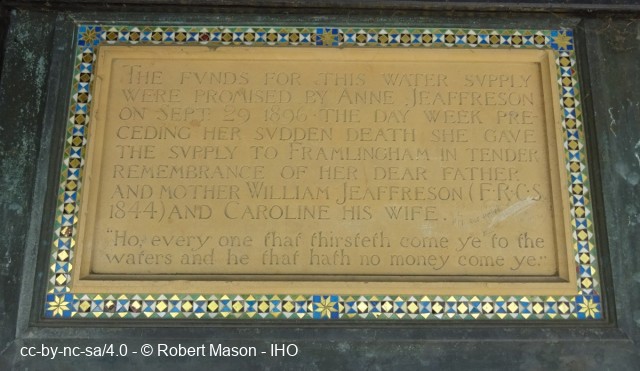 THE FVNDS FOR THIS WATER SVPPLY
WERE PROMISED BY ANNE JEAFFRESON
ON SEPT. 29 1896 · THE DAY WEEK PRE-
CEDING HER SVDDEN DEATH SHE GAVE
THE SVPPLY TO FRAMLINGHAM IN TENDER
REMEMBRANCE OF HER DEAR FATHER
AND MOTHER WILLIAM JEAFFRESON (F·R·C·S
1844) AND CAROLINE HIS WIFE.
"Ho, every one that thirsteth come ye to the
waters and he that hath no money come ye."
cc-by-nc-sa/4.0 - © Robert Mason - IHO